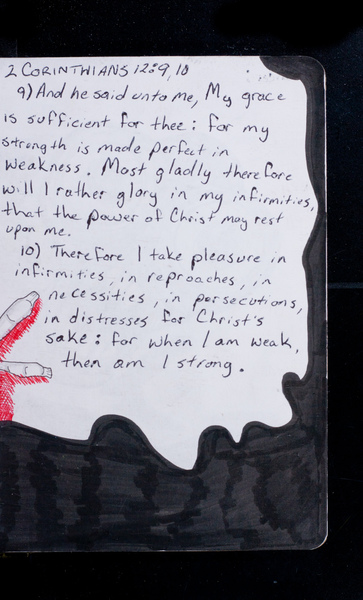 2 CORINTHIANS 12:9,10
9) And he said unto me, My grace
is sufficient for thee: for my
strength is made perfect in
weakness. Most gladly therefore
will I rather glory in my infirmities,
that the power of Christ may rest
upon me.
10) Therefore I take pleasure in
infirmities, in reproaches, in
necessities, in persecutions,
in distresses for Christ's
sake: for when I am weak,
then am I strong.